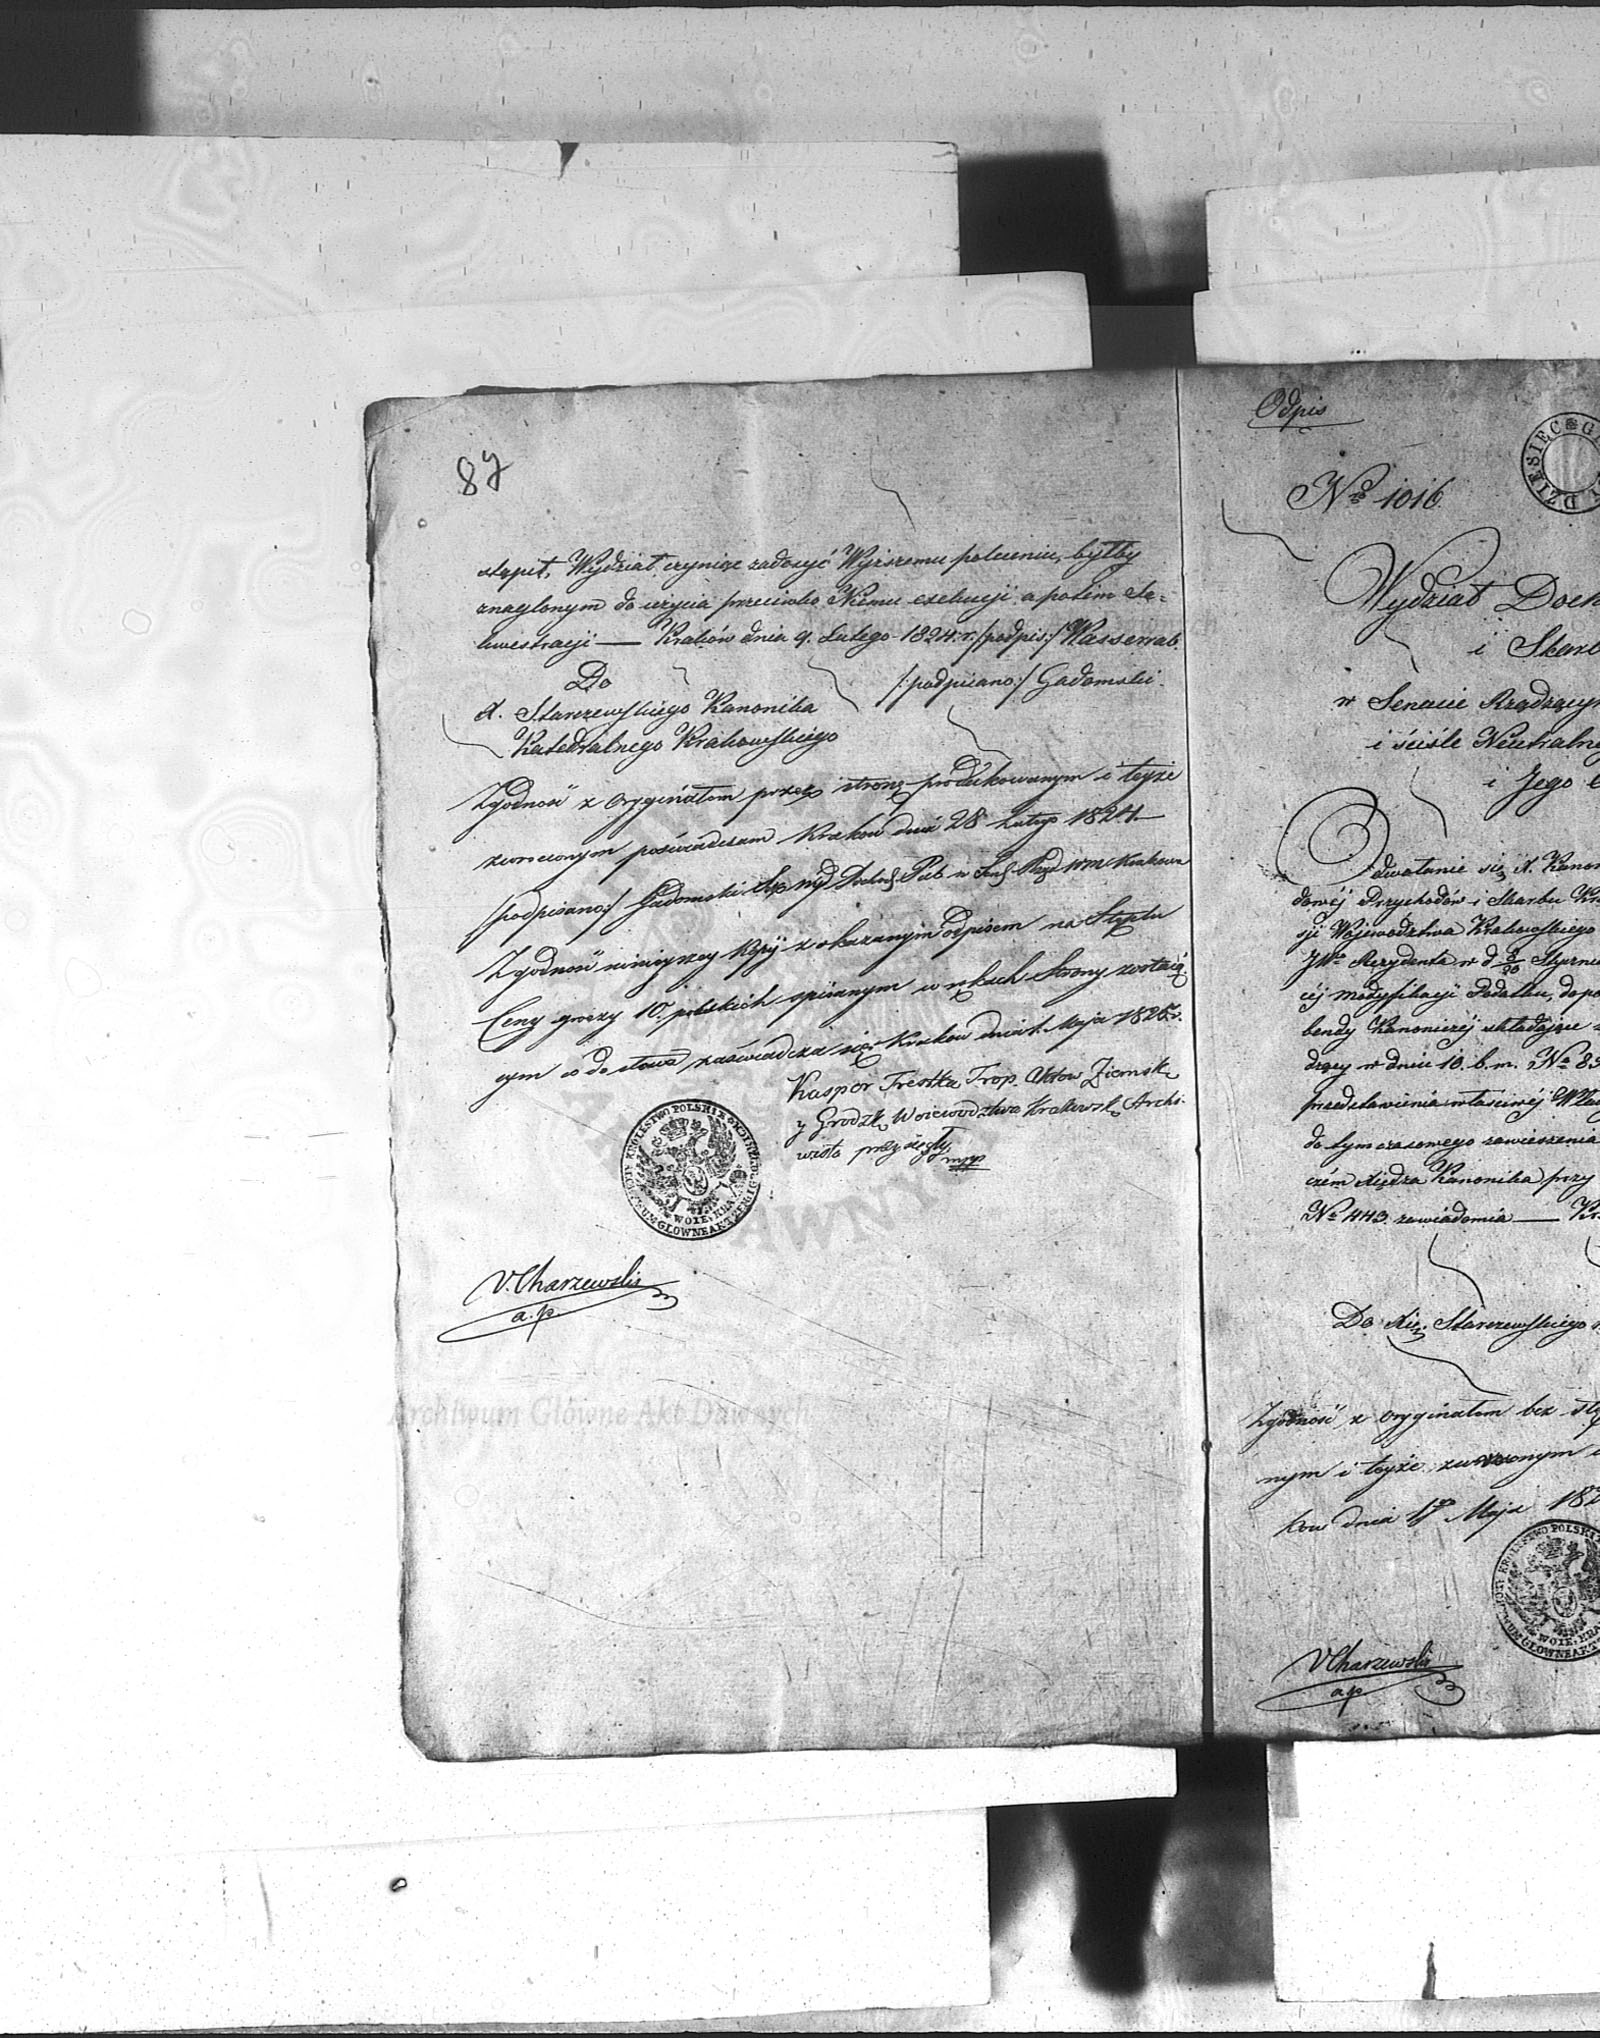 87
stąpił, Wydział czyniąc zadosyć Wyższemu poleceniu, byłby
znaglonym do użycia przeciwko Niemu exekucji a potém Se=
kwestracji — Kraków dnia 9. Lutego 1824. r. /podpis:/ Wasserrab.
Do /:podpisano:/ Gadomski.
X. Starzewskiego Kanonika
Katedralnego Krakowskiego
Zgodność z oryginałem przez stronę produkowanym i teyże
zwróconym poświadczam Kraków dnia 28 Lutego 1824.—
/podpisano:/ Gadomski
Zgodność ninieyszey Kopij z okazanym Odpisem na Stęplu
Ceny groszy 10. polskich spisanym w rękach Strony zostaią
cym co do słowa zaświadcza się Kraków dnia 1. Maja 1825. r.
Kasper Trestka Aktow Ziemsk:
y Grodzk: Woiewodztwa Krakowsk: Archi-
wista przysięgły mpp
KROLESTWO POLSKIE
WOIE: KRA
GŁOWNE AKT
V. Charzewski
a. p.
Archiwum Główne Akt Dawnych
Odpis
DZIESIĘC
No 1016.
Wydział Doch
i Skarb
w Senacie Rządzącym
i ściśle Neutralne
i Jego
Odwołanie się X. Kanon
dowéj Przychodów i Skarbu
sji Województwa Krakowskiego
JWo Rezydenta w d Stycznia
céj modyfikacji Podatku, do
bendy Kanoniczéj składające
dzący w dniu 10. b. m. No
przedstawienia właściwéj
do tymczasowego zawieszenia
czém Xiędza Kanonika przy
No 443. zawiadomia —
Do Xię: Starzewskiego
Zgodność z oryginałem bez
nym i teyże zwróconym
kow dnia Maja
KROLESTWO POLSKI
WOIE: KRA
GŁOWNE AKT
V Charzewski
ap